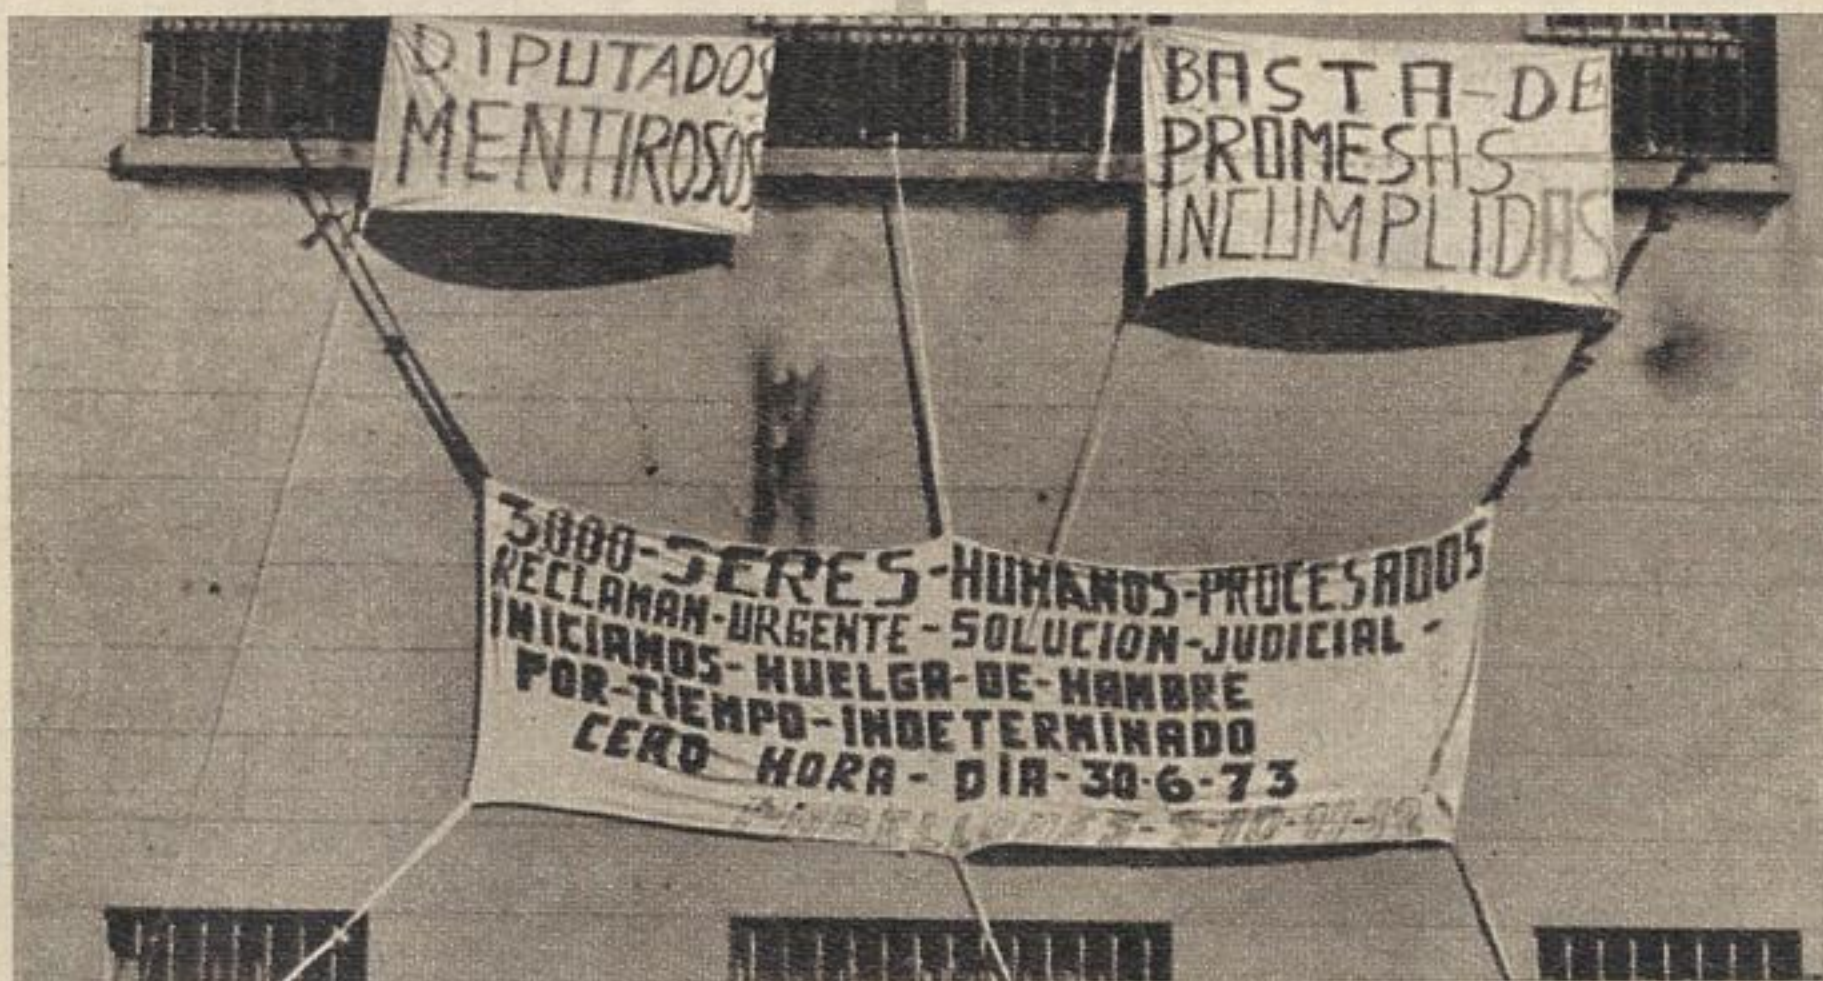 DIPUTADOS
MENTIROSOS
BASTA-DE
PROMESAS
INCUMPLIDAS
3000-SERES-HUMANOS-PROCESADOS
RECLAMAN-URGENTE-SOLUCION-JUDICIAL-
INICIAMOS-HUELGA-DE-HAMBRE
POR-TIEMPO-INDETERMINADO
CERO HORA-DIA-30-6-73